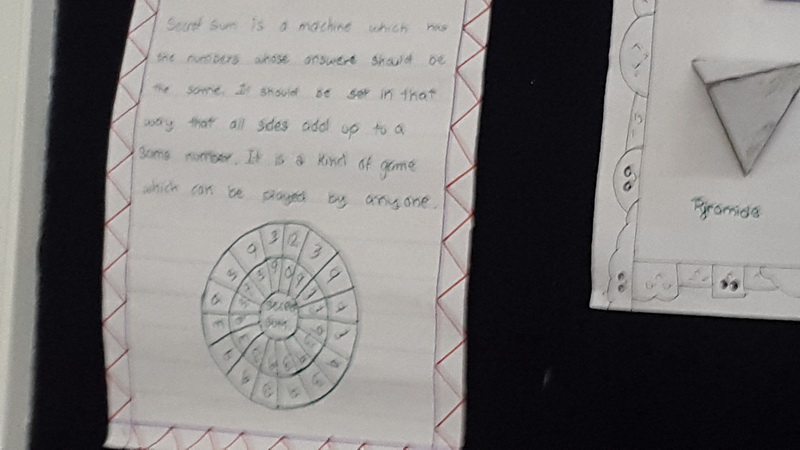 Secret sum is a machine which has
the numbers whose answers should be
the same. It should be set in that
way that all sides add up to a
same number. It is a kind of game
which can be played by anyone.
9 3 12 3 4
Secret
sum
Pyramids